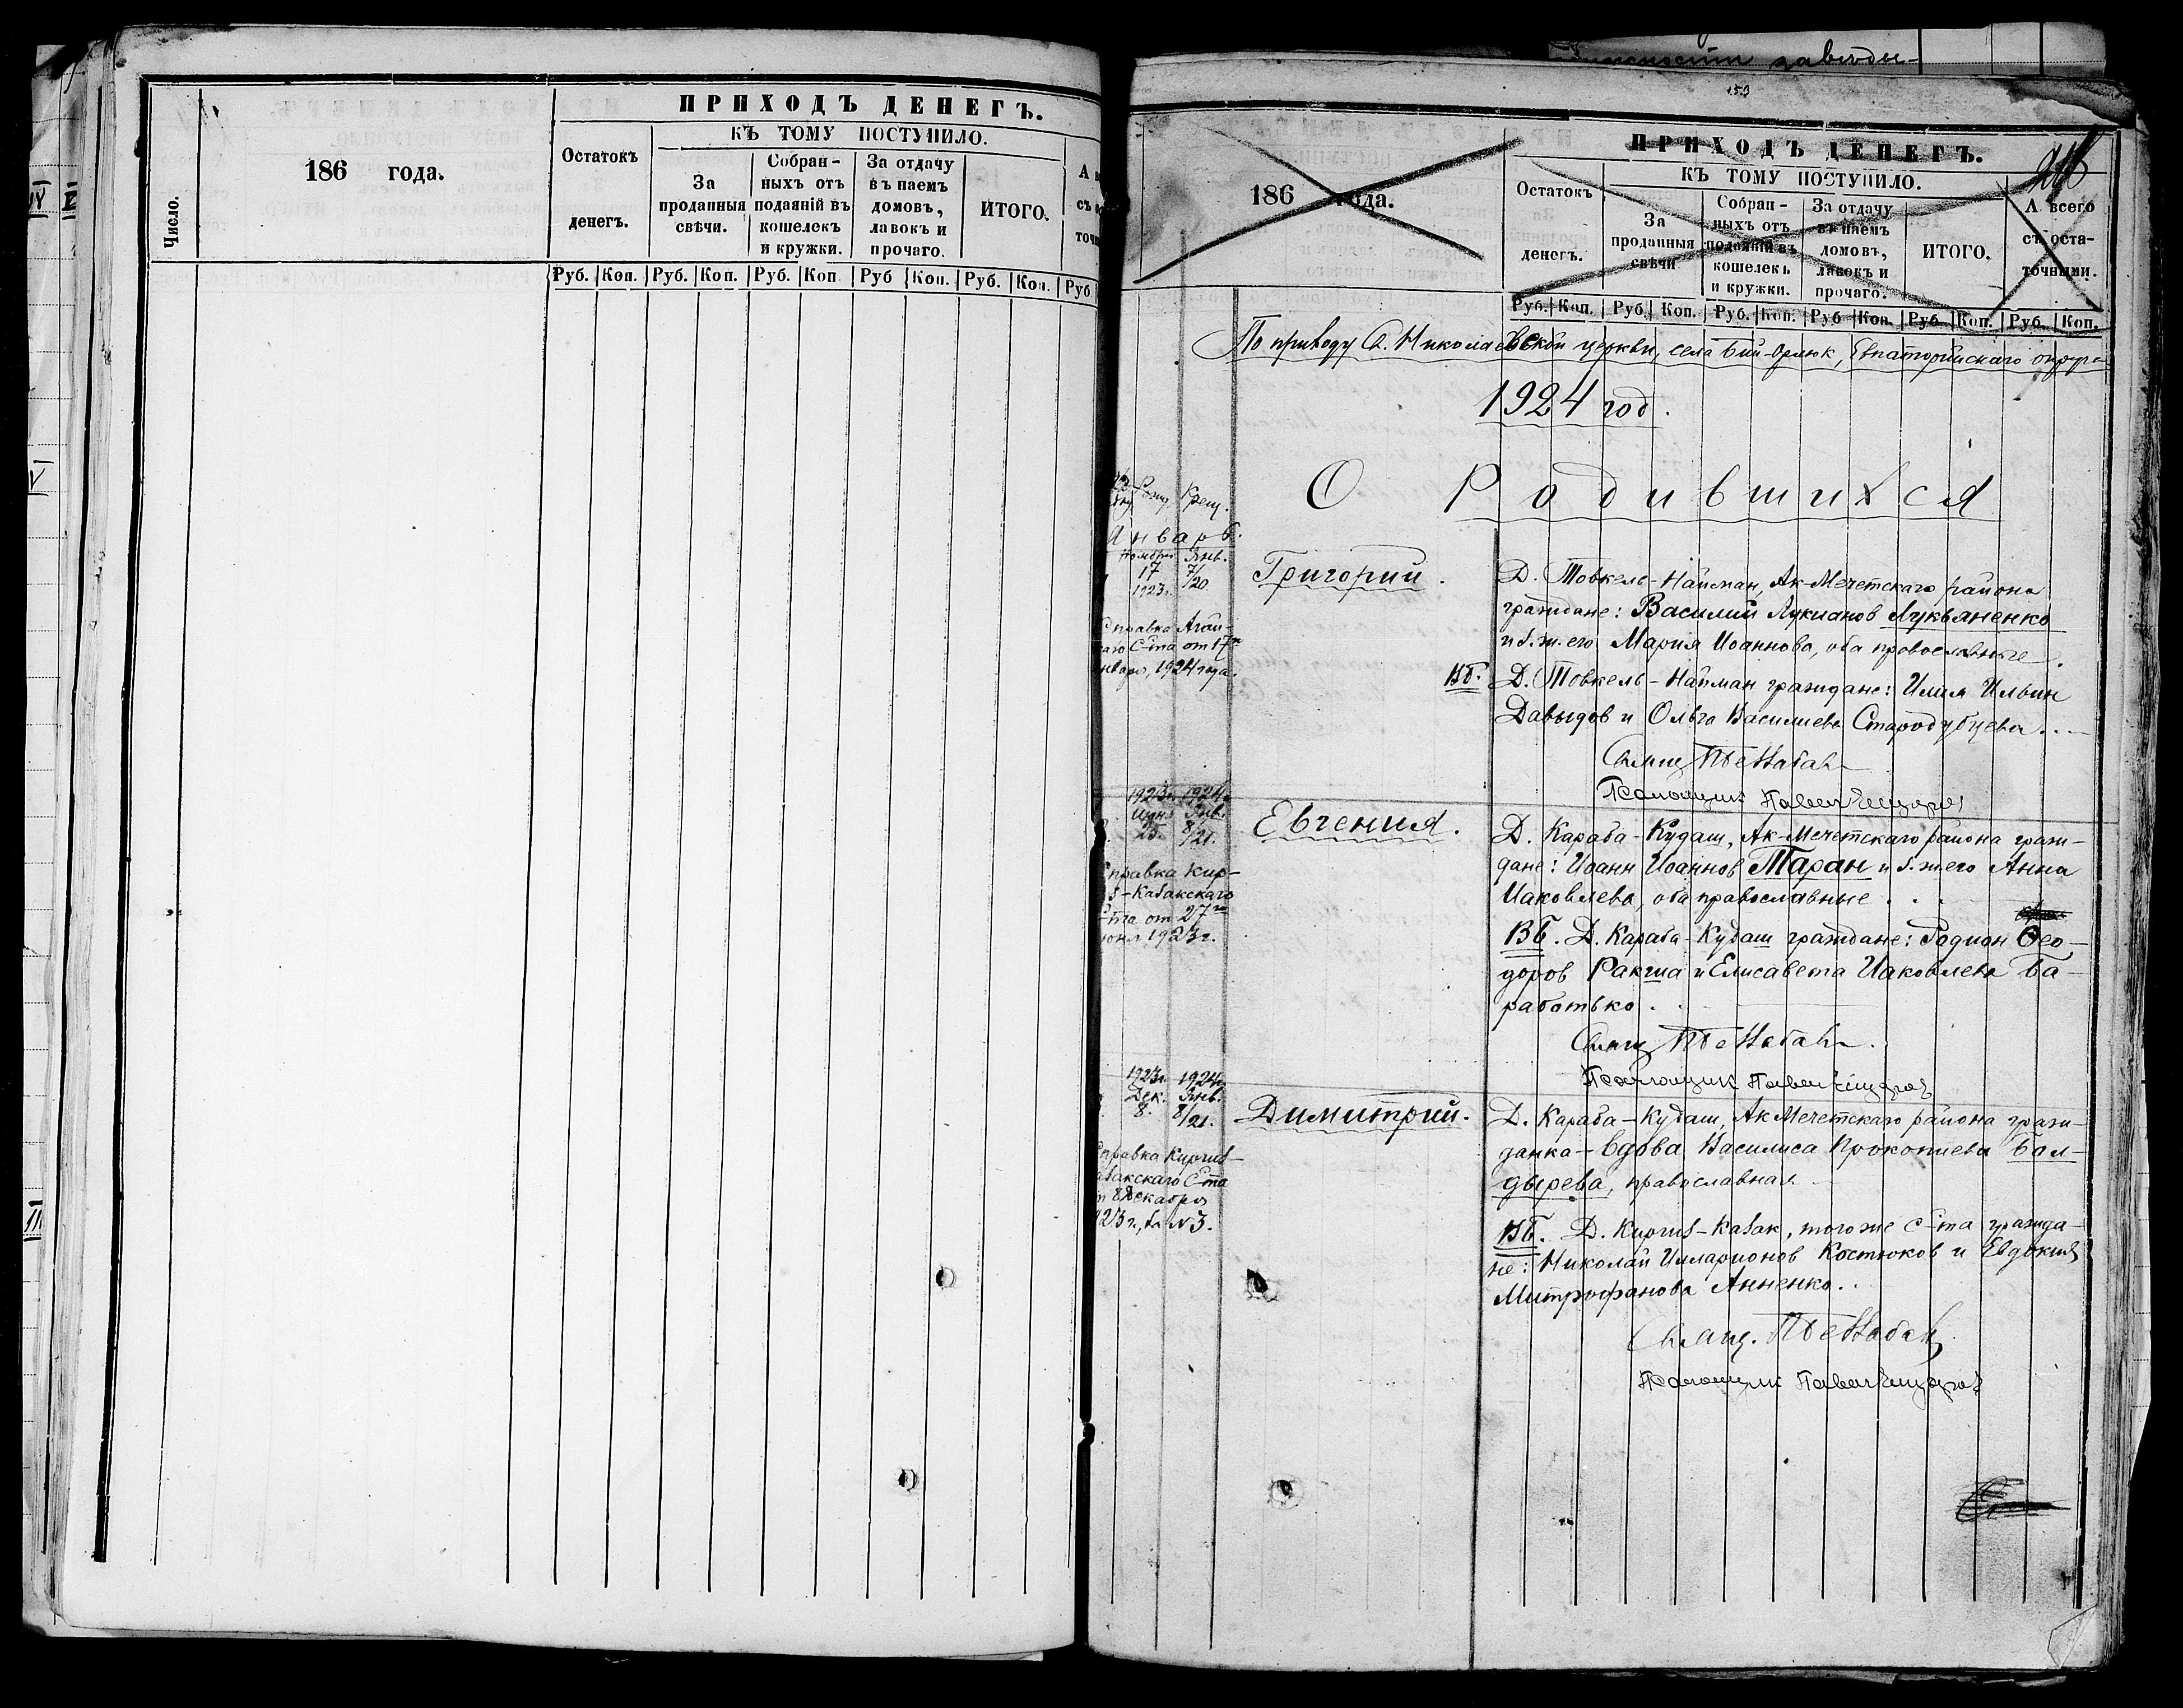 ПРИХОДЪ ДЕНЕГЪ.
КЪ ТОМУ ПОСТУПИЛО.
Число.
186 года.
Остатокъ
денегъ.
За
проданныя
свѣчи.
Собран-
ныхъ отъ
подаяній въ
кошелекъ
и кружки.
За отдачу
въ наемъ
домовъ,
лавокъ и
прочаго.
ИТОГО.
Руб. Коп. Руб. Коп. Руб. Коп. Руб Коп. Руб. Коп. Руб
заводы-
153
ПРИХОДЪ ДЕНЕГЪ.
КЪ ТОМУ ПОСТУПИЛО.
186 года.
Остатокъ
денегъ.
За
проданныя
свѣчи
Собран-
ныхъ отъ
подаяній въ
кошелекъ
и кружки.
За отдачу
въ наемъ
домовъ,
лавокъ и
прочаго.
ИТОГО.
А всего
съ оста-
точными.
Руб. Коп. Руб. Коп. Руб. Коп. Руб Коп. Руб. Коп. Руб. Коп.
По приходу С. Николаевской церкви, села Бий-Орлюк, Евпаторийскаго округа
1924 год.
О Родившихся
Рожд. Крещ.
Январь.
Ноября Янв.
17 7/20
1923г.
Справка Агай-
каго С-та от 17го
января, 1924 года.
Григорий.
Д. Товкель-Найман, Ак-Мечетскаго района
граждане: Василий Лукианов Лукьяненко
и з. ж. его Мария Иоаннова, оба православные.
ВБ. Д. Товкель-Найман граждане: Илия Ильин
Давыдов и Ольга Василиева Стародубцева...
Псаломщик Павел
1923г. 1924г.
Июня Янв.
25. 8/21.
Справка Кир-
з-Кабакскаго
С-та от 27го
июня 1923г.
Евгения.
Д. Караба-Кудаш, Ак-Мечетскаго района граж-
дане: Иоанн Иоаннов Таран и з. ж его Анна
Иаковлева, оба православные
ВБ. Д. Караба-Кудаш граждане: Родион Ѳео-
доров Ракша и Елисавета Иаковлева Ба-
работько.
Псаломщик Павел
1923г. 1924г.
Дек. Янв.
8. 8/21.
Справка Киргиз-
Кабакскаго С-та
от 8 Декабря
1923г., за №3.
Димитрий.
Д. Караба-Кудаш, Ак Мечетскаго района граж-
данка-вдова Василиса Прокопиева Бол-
дырева, православная.
ВБ. Д. Киргиз-Казак, того же С-та гражда-
не: Николай Илларионов Костюков и Евдокия
Митрофанова Анненко.
Псаломщик Павел